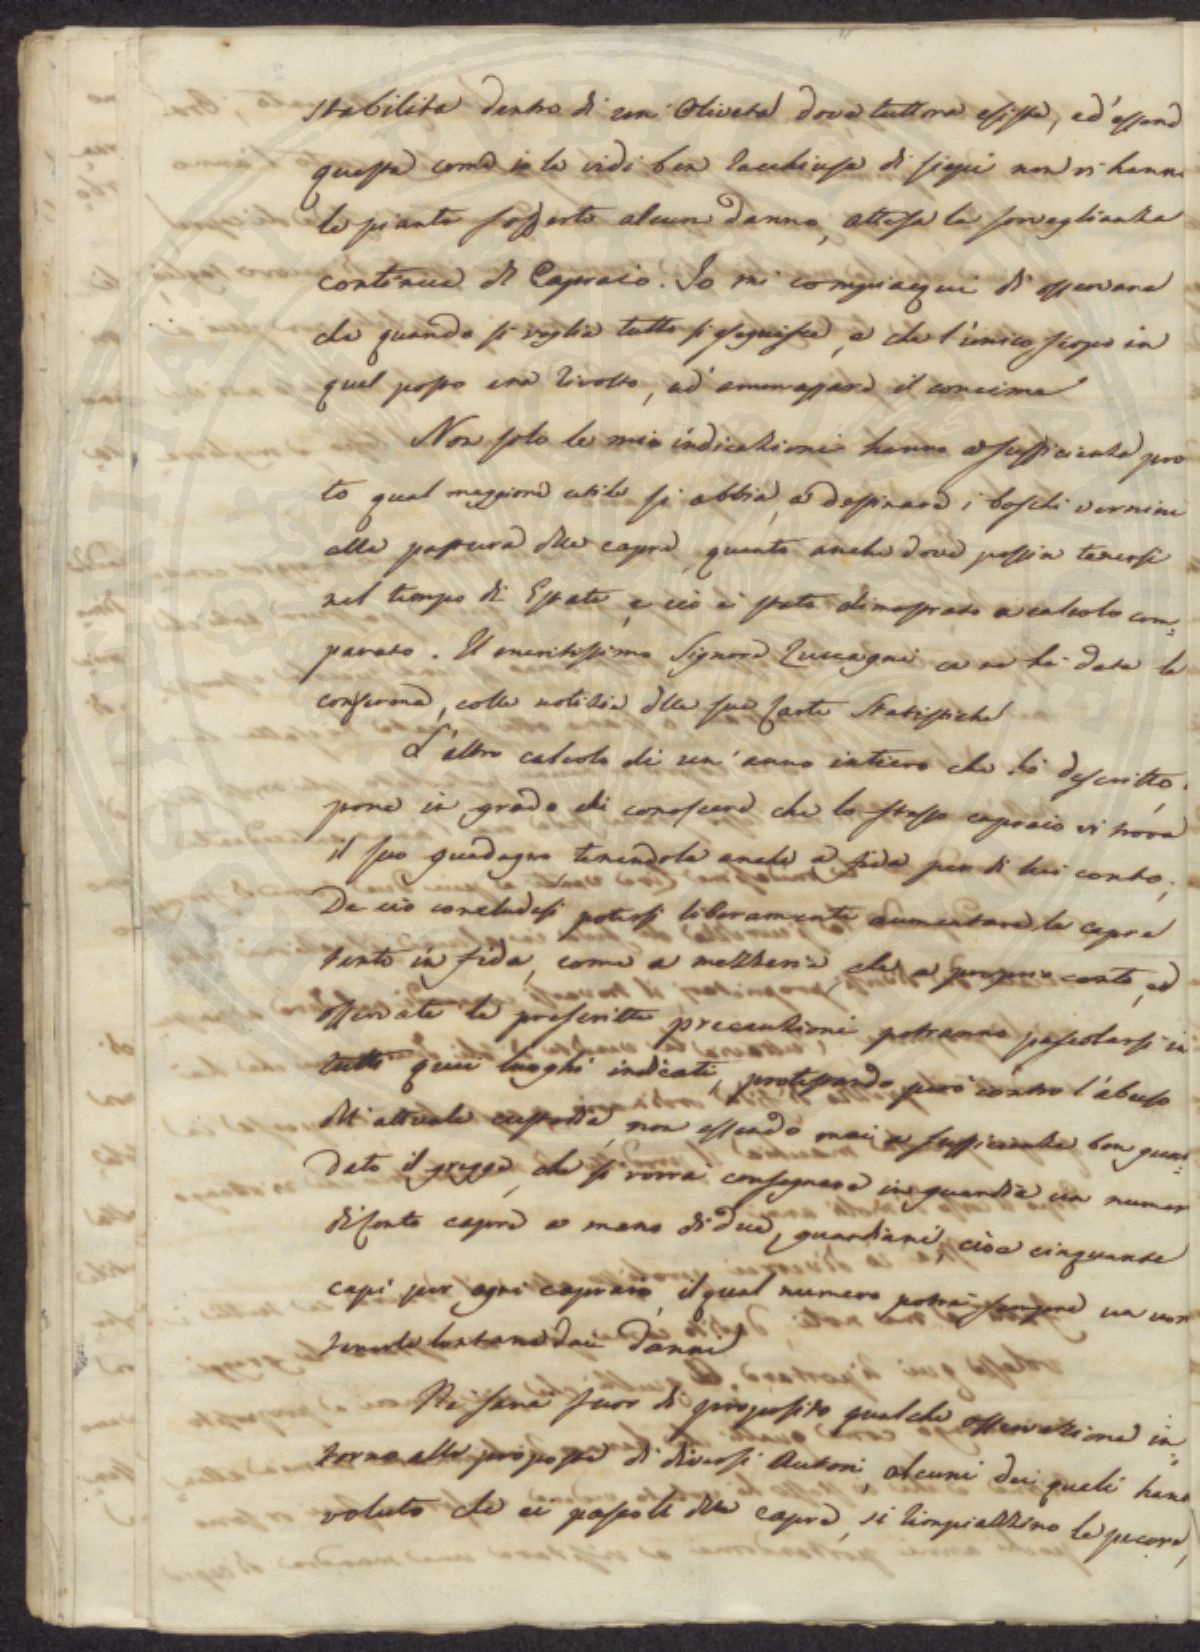 stabilita dentro di un' Oliveta dove tuttora esiste, ed essend
questa come io la vidi ben racchiusa di siepi non vi hann
le piante sofferto alcun danno, attesa la sorveglianza
continua di Capraio. Io mi compiacqui di osservare
che quando si voglia tutto si eseguisce, e che l'unico scopo in
quel posto era rivolto, ad ammassare il concime
Non solo le mie indicazioni hanno a sufficienza pro
to qual maggiore utile si abbia, a destinare i boschi vernini
alla pastura delle capre, quanto anche dove possin tenersi
nel tempo di Estate, e ciò è stato dimostrato a calcolo com=
parato. Il meritissimo Signore Zuccagni ce ne ha data la
conferma, colle notizie delle sue Carte Statistiche
L'altro calcolo di un' anno intiero che ho descritto,
pone in grado di conoscere che lo stesso capraio vi trova
il suo guadagno tenendole anche a fida per di lui conto;
Da ciò concludesi potersi liberamente aumentare le capre
tanto in fida, come a mezzeria, che a proprio conto, ed
osservate le prescritte precauzioni potranno pascolarsi in
tutti quei luoghi indicati, protestando però contro l'abuso
dell'attuale custodia, non essendo mai a sufficienza ben guar=
dato il gregge, che si vorrà consegnare in guardia un numer
di cento capre a meno di due guardiani, cioè cinquanta
capi per ogni capraio, il qual numero potrà sempre un uor
tenerle lontane dai danni
Ne sarà fuor di proposito qualche osservazione in=
torno alle proposte di diversi Autori, alcuni dei quali hann
voluto che ai pascoli delle capre, si rimpiazzino le pecore,